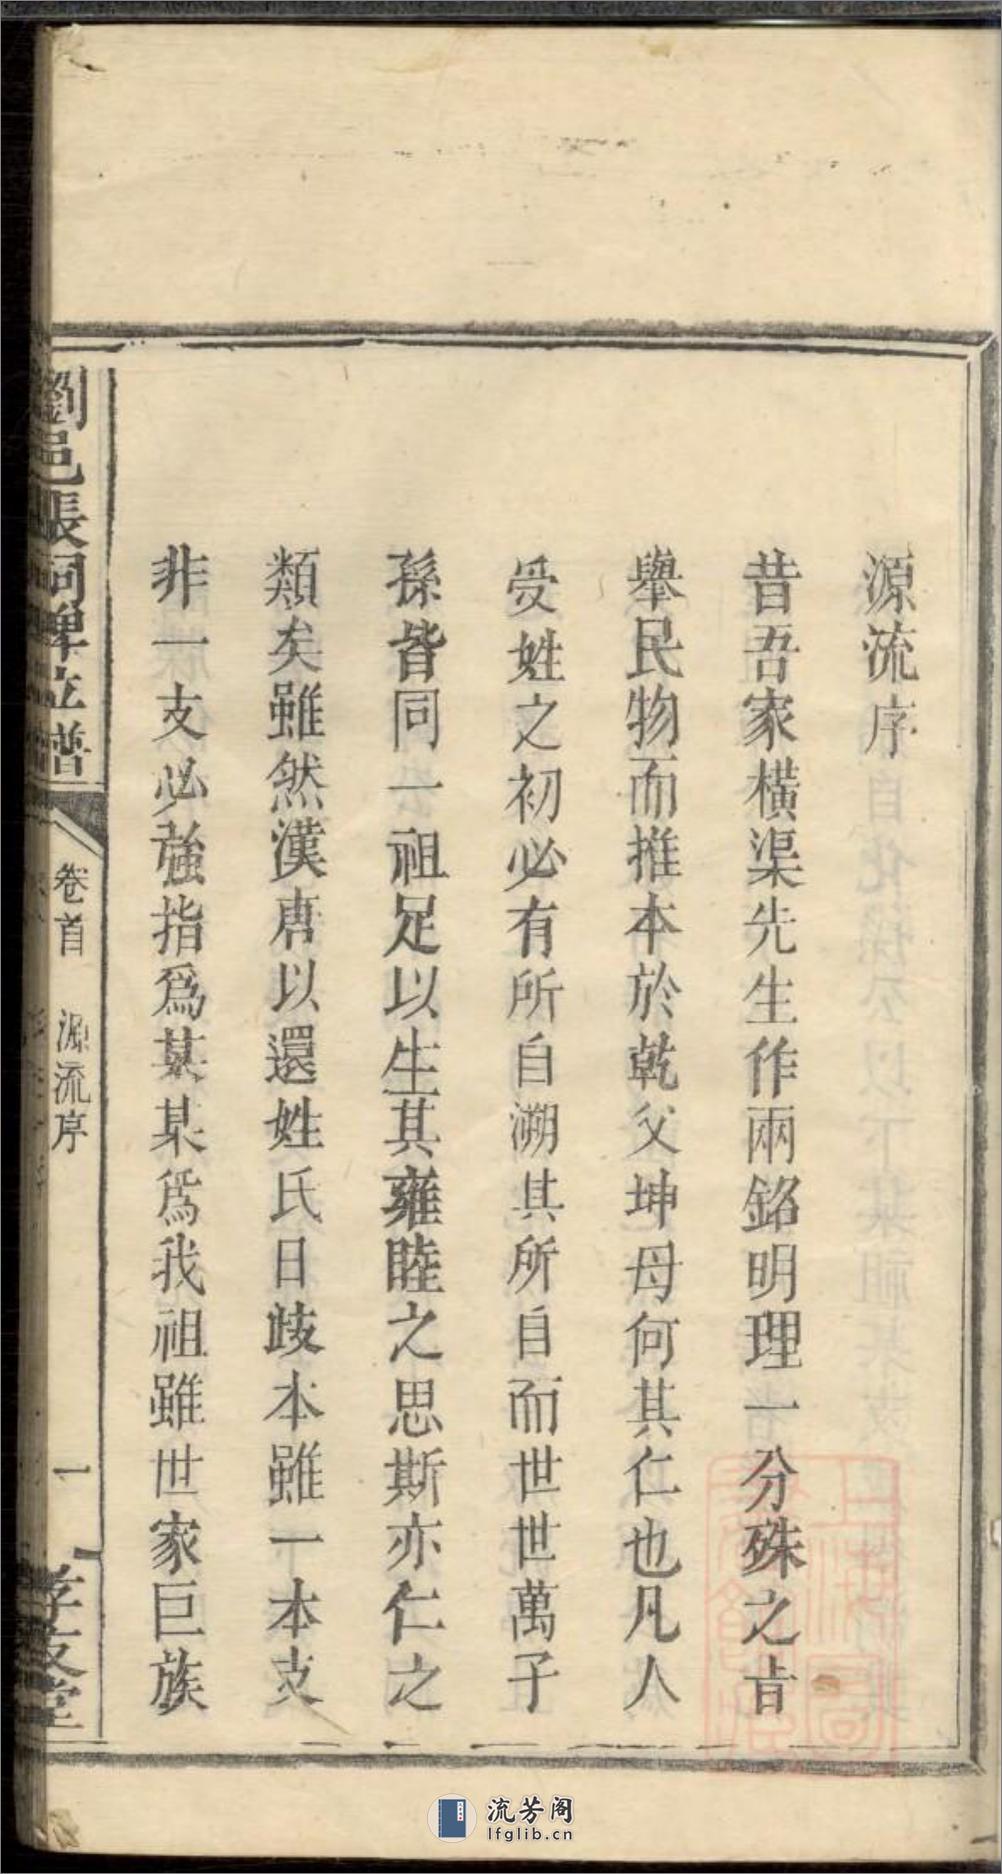 源流序
昔吾家橫渠先生作兩銘明理一分殊之旨
舉民物而推本於乾父坤母何其仁也凡人
受姓之初必有所自溯其所自而世世萬子
孫皆同一祖足以生其雍睦之思斯亦仁之
類矣雖然漢唐以還姓氏日歧本雖一本支
非一支必強指爲某某爲我祖雖世家巨族
劉邑張祠譜
卷首 源流序 一
孝友堂
流芳阁
lfglib.cn